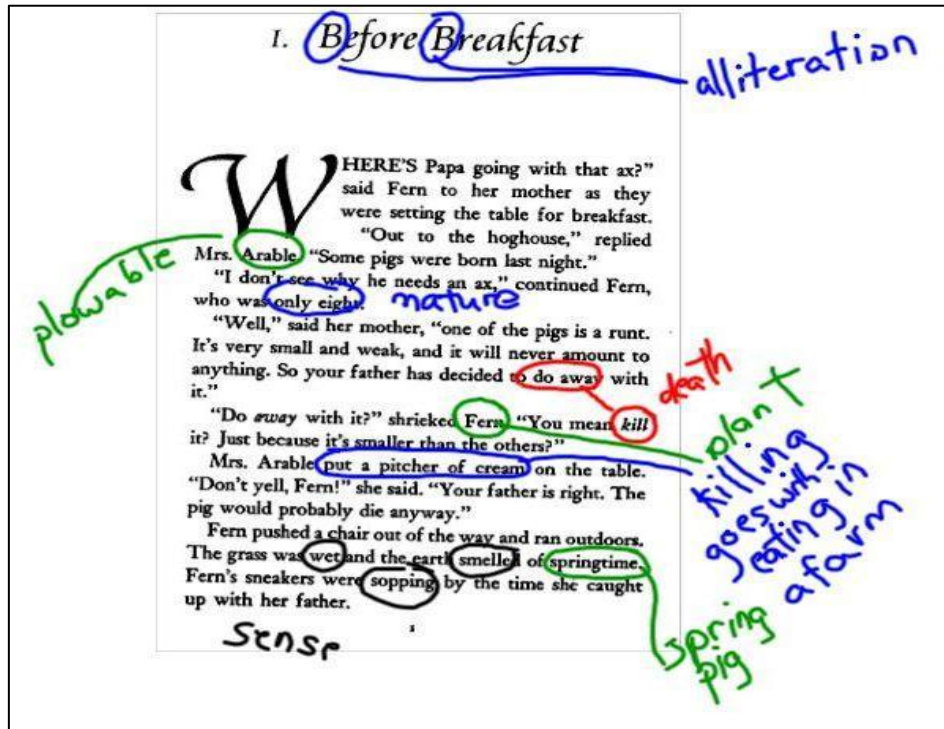 I. Before Breakfast
alliteration
WHERE'S Papa going with that ax?"
said Fern to her mother as they
were setting the table for breakfast.
"Out to the hoghouse," replied
Mrs. Arable. "Some pigs were born last night."
plowable
"I don't see why he needs an ax," continued Fern,
who was only eight.
nature
"Well," said her mother, "one of the pigs is a runt.
It's very small and weak, and it will never amount to
anything. So your father has decided to do away with
it."
death
"Do away with it?" shrieked Fern. "You mean kill
it? Just because it's smaller than the others?"
plant
Mrs. Arable put a pitcher of cream on the table.
"Don't yell, Fern!" she said. "Your father is right. The
pig would probably die anyway."
killing
goes with
eating in
a farm
Fern pushed a chair out of the way and ran outdoors.
The grass was wet and the earth smelled of springtime.
Fern's sneakers were sopping by the time she caught
up with her father.
spring
pig
sense
1